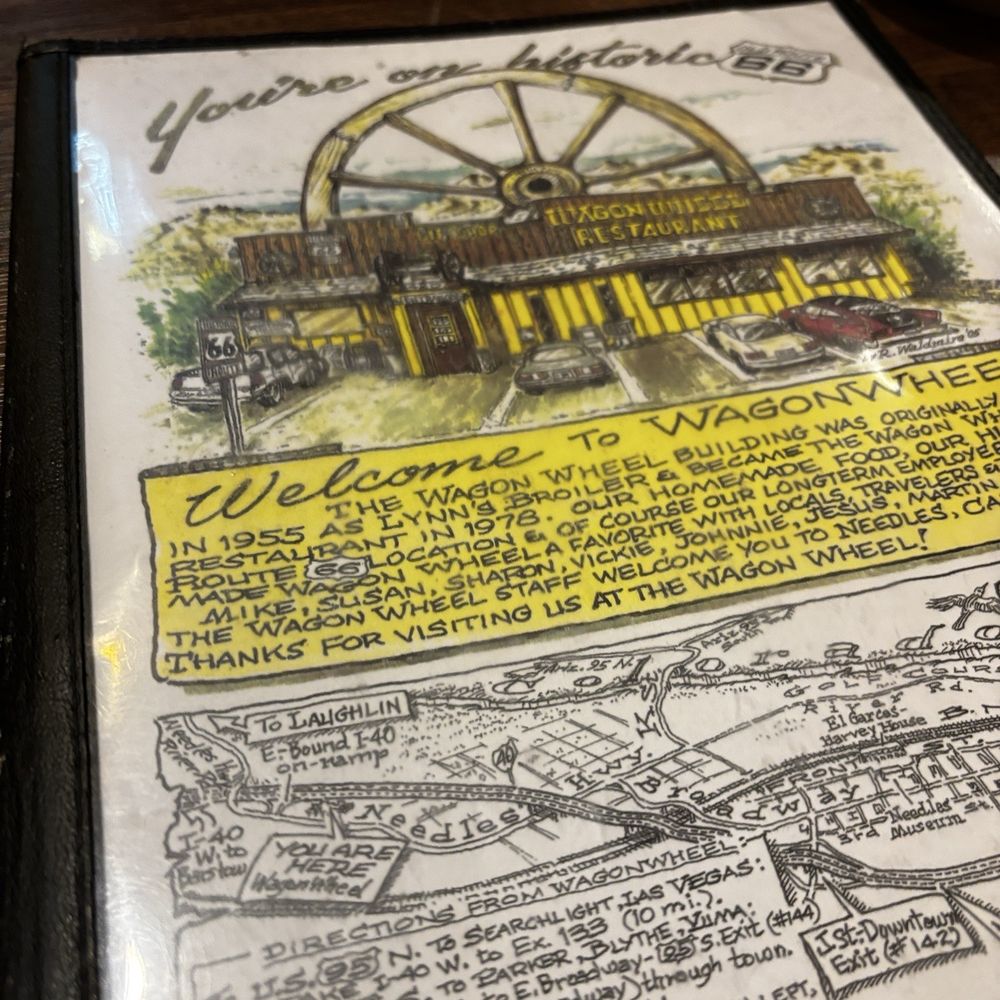 You're on historic 66
WAGON WHEEL
RESTAURANT
66
R. Waldmire '05
Welcome TO WAGONWHEE
THE WAGON WHEEL BUILDING WAS ORIGINALLY
IN 1955 AS LYNN'S BROILER & BECAME THE WAGON WH
RESTAURANT IN 1978. OUR HOMEMADE FOOD, OUR H
ROUTE 66 LOCATION & OF COURSE OUR LONGTERM EMPLOYEE
MADE WAGON WHEEL A FAVORITE WITH LOCALS, TRAVELERS &
MIKE, SUSAN, SHARON, VICKIE, JOHNNIE, JESUS, MARTIN
THE WAGON WHEEL STAFF WELCOME YOU TO NEEDLES, CA
THANKS FOR VISITING US AT THE WAGON WHEEL!
Ariz. 95 N.
Ariz. 95
South
GOLF COUR
River Rd.
TO LAUGHLIN
E-Bound I-40
on-ramp
El Garces-
Harvey House
Needles Hwy
Broadway
FRONT
3rd
Needles
Museum
I-40
W. to
Barstow
YOU ARE
HERE
WagonWheel
DIRECTIONS FROM WAGONWHEEL:
U.S. 95 N. TO SEARCHLIGHT, LAS VEGAS:
I-40 W. to Ex. 133 (10 mi.).
TO PARKER, BLYTHE, YUMA:
to E. Broadway - 95 S. Exit (#144)
through town.
J St.-Downtown
Exit (#142)